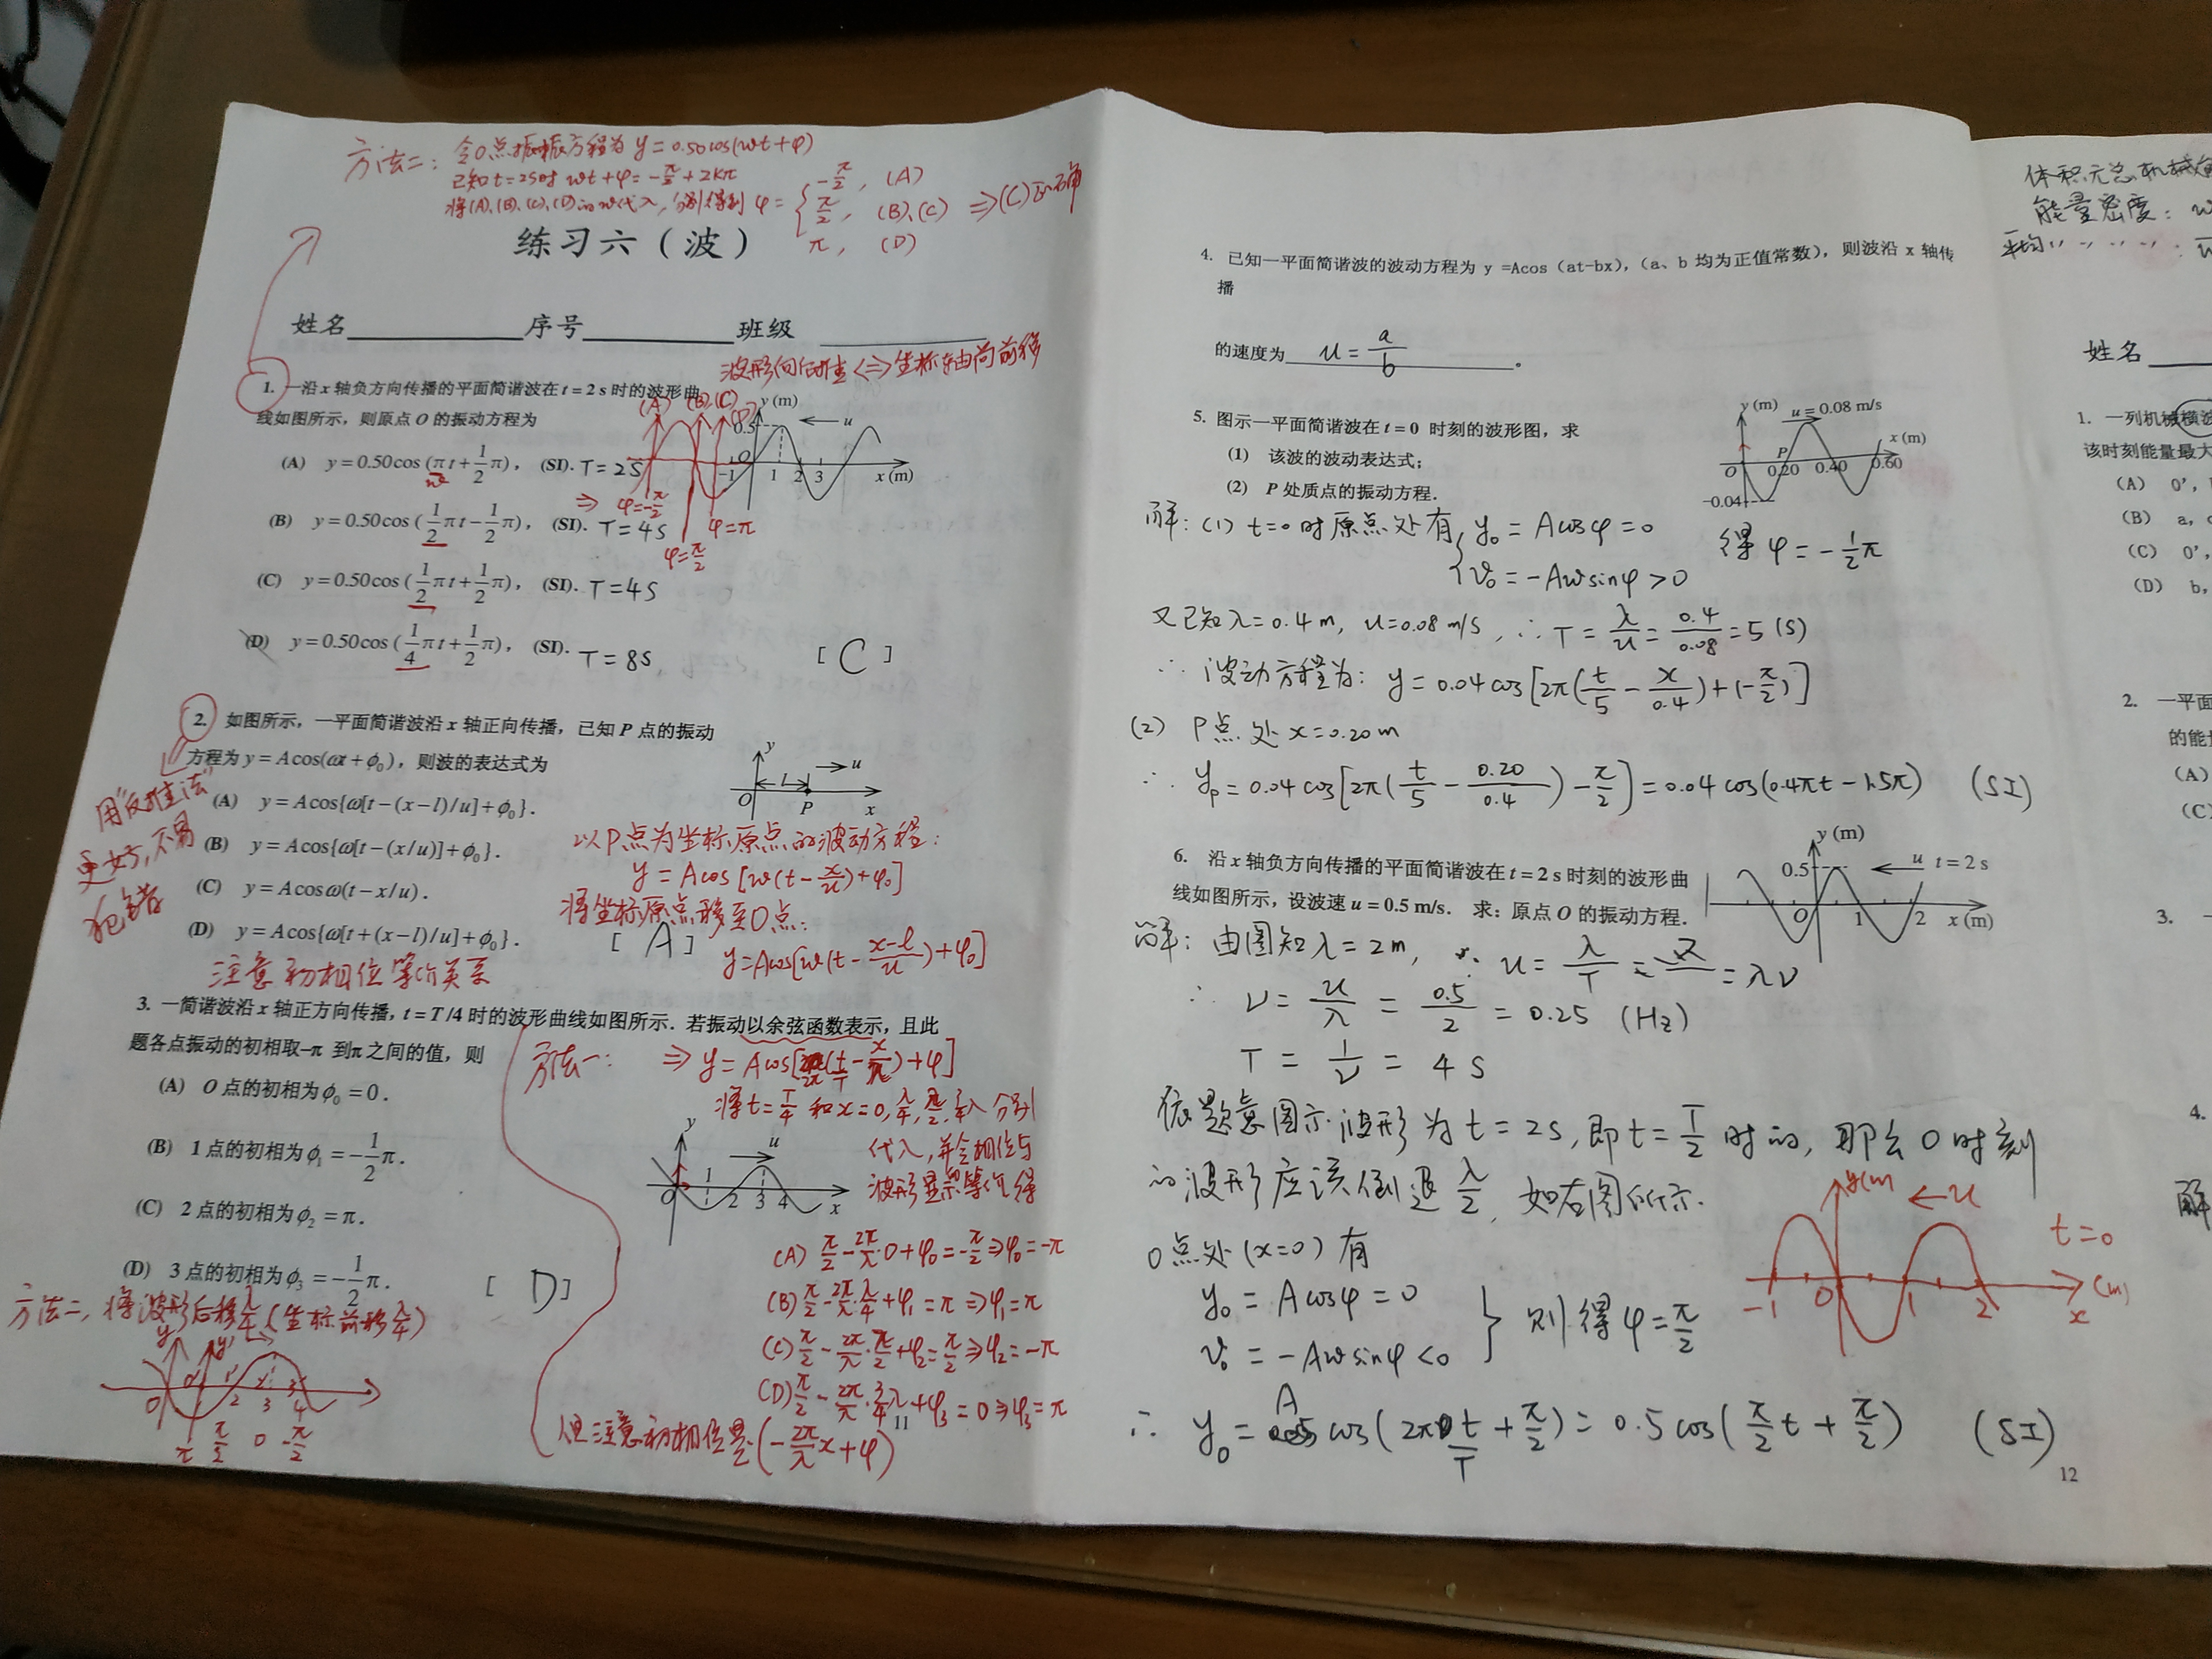 方法二：令O点振动方程为 y=0.50cos(ωt+φ)
已知t=2s时 ωt+φ=-π/2+2kπ
将(A)、(B)、(C)、(D)的ω代入，分别得到 φ={-π/2, (A)
π/2, (B)、(C) ⇒(C)正确
π, (D)
练习六（波）
姓名 序号 班级
波形向后推⇔坐标轴向前移
1. 一沿 x 轴负方向传播的平面简谐波在 t = 2 s 时的波形曲
线如图所示，则原点 O 的振动方程为
(A) y = 0.50cos (π t + 1/2 π)， (SI). T=2S
ω
(B) y = 0.50cos (1/2 π t - 1/2 π)， (SI). T=4S
(C) y = 0.50cos (1/2 π t + 1/2 π)， (SI). T=4S
(D) y = 0.50cos (1/4 π t + 1/2 π)， (SI). T=8S
[ C ]
(A) (B)(C) (D)
y (m)
0.5
u
-1 O 1 2 3 x (m)
⇒ φ=-π/2
φ=π/2
φ=π
2. 如图所示，一平面简谐波沿 x 轴正向传播，已知 P 点的振动
方程为 y = Acos(ωt + ϕ₀)，则波的表达式为
(A) y = Acos{ω[t - (x - l)/u] + ϕ₀}.
(B) y = Acos{ω[t - (x/u)] + ϕ₀}.
(C) y = Acosω(t - x/u).
(D) y = Acos{ω[t + (x - l)/u] + ϕ₀}.
[ A ]
用“反推法”
更好，不易
犯错
y
l u
O P x
以P点为坐标原点的波动方程：
y=Acos[ω(t-x/u)+φ₀]
将坐标原点移至O点：
y=Acos[ω(t-(x-l)/u)+φ₀]
注意初相位等价关系
3. 一简谐波沿 x 轴正方向传播，t = T /4 时的波形曲线如图所示．若振动以余弦函数表示，且此
题各点振动的初相取-π 到π 之间的值，则
(A) O 点的初相为ϕ₀ = 0.
(B) 1 点的初相为ϕ₁ = -1/2 π.
(C) 2 点的初相为ϕ₂ = π.
(D) 3 点的初相为ϕ₃ = -1/2 π.
[ D ]
方法一： ⇒ y=Acos[2π(t/T-x/λ)+φ]
将t=T/4 和x=0, λ/4, λ/2, 3/4λ 分别
代入，并令相位与
波形等价得
y
u
O 1 2 3 4 x
(A) π/2-2π/λ·0+φ₀=-π/2⇒φ₀=-π
(B) π/2-2π/λ·λ/4+φ₁=π⇒φ₁=π
(C) π/2-2π/λ·λ/2+φ₂=π/2⇒φ₂=-π
(D) π/2-2π/λ·3/4λ+φ₃=0⇒φ₃=π
但注意初相位是(-2π/λ x+φ)
方法二，将波形后移λ/4(坐标前移λ/4)
y y'
O O' 1' 2' 3'
2 3 4
π π/2 0 -π/2
11
4. 已知一平面简谐波的波动方程为 y =Acos（at-bx），（a、b 均为正值常数），则波沿 x 轴传
播
的速度为 u = a/b 。
5. 图示一平面简谐波在 t = 0 时刻的波形图，求
(1) 该波的波动表达式；
(2) P 处质点的振动方程．
y (m) u = 0.08 m/s
x (m)
O P 0.20 0.40 0.60
-0.04
解：(1) t=0时原点处有{y₀=Acosφ=0
v₀=-Aωsinφ>0
得 φ=-1/2π
又已知λ=0.4m, u=0.08m/s, ∴T=λ/u=0.4/0.08=5(S)
∴ 波动方程为: y=0.04cos[2π(t/5-x/0.4)+(-π/2)]
(2) P点处 x=0.20m
∴ yp=0.04cos[2π(t/5-0.20/0.4)-π/2]=0.04cos(0.4πt-1.5π) (SI)
6. 沿 x 轴负方向传播的平面简谐波在 t = 2 s 时刻的波形曲
线如图所示，设波速 u = 0.5 m/s． 求：原点 O 的振动方程．
y (m)
0.5 u t = 2 s
O 1 2 x (m)
解：由图知λ=2m, ∵ u=λ/T=λν
∴ ν=u/λ=0.5/2=0.25 (Hz)
T=1/ν=4S
依题意图示波形为t=2s, 即t=T/2时的，那么0时刻
的波形应该倒退λ/2, 如右图所示.
y(m) u
t=0
-1 O 1 2 x (m)
O点处(x=0)有
y₀=Acosφ=0
v₀=-Aωsinφ<0
} 则得φ=π/2
∴ y₀=Acos(2πt/T+π/2)=0.5cos(π/2t+π/2) (SI)
12
体积元总机械
能量密度：w
平均
姓名
1. 一列机械横波
该时刻能量最大
(A) O′，
(B) a，
(C) O′，
(D) b，
2. 一平面
的能量
(A)
(C)
3. 一
4.
解